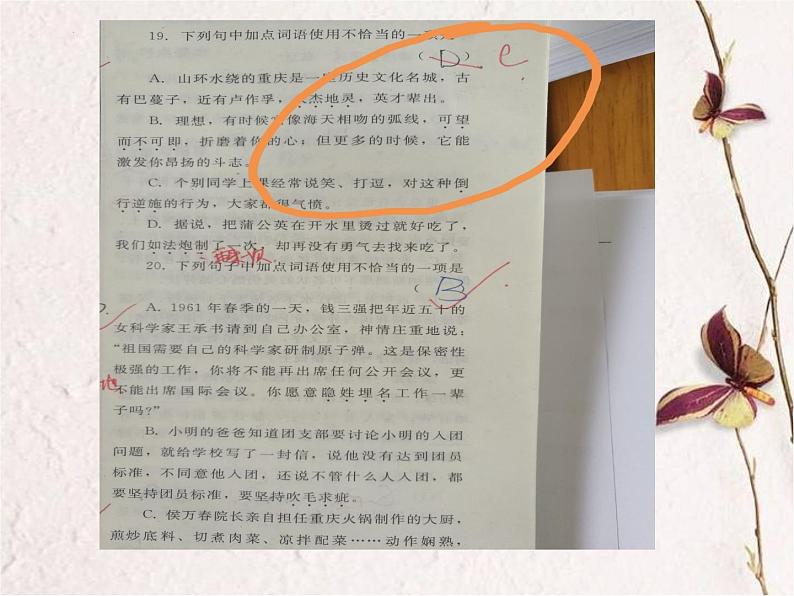 19. 下列句中加点词语使用不恰当的一项是
（ D ） C
A. 山环水绕的重庆是一座历史文化名城，古
有巴蔓子，近有卢作孚，人杰地灵，英才辈出。
B. 理想，有时候就像海天相吻的弧线，可望
而不可即，折磨着你的心；但更多的时候，它能
激发你昂扬的斗志。
C. 个别同学上课经常说笑、打逗，对这种倒
行逆施的行为，大家都很气愤。
D. 据说，把蒲公英在开水里烫过就好吃了，
我们如法炮制了一次，却再没有勇气去找来吃了。
20. 下列句子中加点词语使用不恰当的一项是
（ B ）
A. 1961 年春季的一天，钱三强把年近五十的
女科学家王承书请到自己办公室，神情庄重地说：
“祖国需要自己的科学家研制原子弹。这是保密性
极强的工作，你将不能再出席任何公开会议，更
不能出席国际会议。你愿意隐姓埋名工作一辈
子吗？”
B. 小明的爸爸知道团支部要讨论小明的入团
问题，就给学校写了一封信，说他没有达到团员
标准，不同意他入团，还说不管什么人入团，都
要坚持团员标准，要坚持吹毛求疵。
C. 侯万春院长亲自担任重庆火锅制作的大厨，
煎炒底料、切煮肉菜、凉拌配菜……动作娴熟，